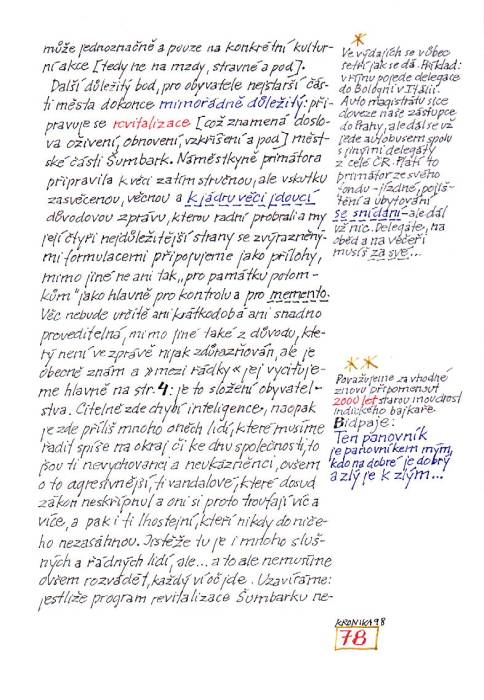 může jednoznačně a pouze na konkrétní kultur-
ní akce [tedy ne na mzdy, stravné a pod].
Další důležitý bod, pro obyvatele nejstarší čás-
ti města dokonce mimořádně důležitý: při-
pravuje se revitalizace [což znamená doslo-
va oživení, obnovení, vzkříšení a pod] měst-
ské části Šumbark. Náměstkyně primátora
připravila k věci zatím stručnou, ale vskutku
zasvěcenou, věcnou a k jádru věci jdoucí
důvodovou zprávu, kterou radní probrali a my
její čtyři nejdůležitější strany se zvýrazněný-
mi formulacemi připojujeme jako přílohy,
mimo jiné ne ani tak „pro památku potom-
kům" jako hlavně pro kontrolu a pro memento.
Věc nebude určitě ani krátkodobá ani snadno
proveditelná, mimo jiné také z důvodu, kte-
rý není ve zprávě nijak zdůrazňován, ale je
obecně znám a »mezi řádky« jej vycituje-
me hlavně na str. 4: je to složení obyvatel-
stva. Citelně zde chybí inteligence, naopak
je zde příliš mnoho oněch lidí, které musíme
řadit spíše na okraj či ke dnu společnosti, to
jsou ti nevychovanci a neukázněnci, ovšem
o to agresívnější, ti vandalové, které dosud
zákon neskřípnul a oni si proto troufají víc a
více, a pak i ti lhostejní, kteří nikdy do niče-
ho nezasáhnou. Jistěže tu je i mnoho sluš-
ných a řádných lidí, ale... a to ale nemusíme
ovšem rozvádět, každý ví oč jde. Uzavíráme:
jestliže program revitalizace Šumbarku ne-
*
Ve výdajích se vůbec
šetří jak se dá. Příklad:
v říjnu pojede delegace
do Bologni v Itálii.
Auto magistrátu sice
doveze naše zástupce
do Prahy, ale dál se už
jede autobusem spolu
s jinými delegáty
z celé ČR. Platí to
primátor ze svého
fondu - jízdné, pojiš-
tění a ubytování
se snídaní - ale dál
už nic. Delegáte, na
oběd a na večeři
musíš za své...
**
Považujeme za vhodné
znovu připomenout
2000 let starou moudrost
indického bajkaře
Bidpaje:
Ten panovník
je panovníkem mým,
kdo na dobré je dobrý
a zlý je k zlým...
KRONIKA 98
78